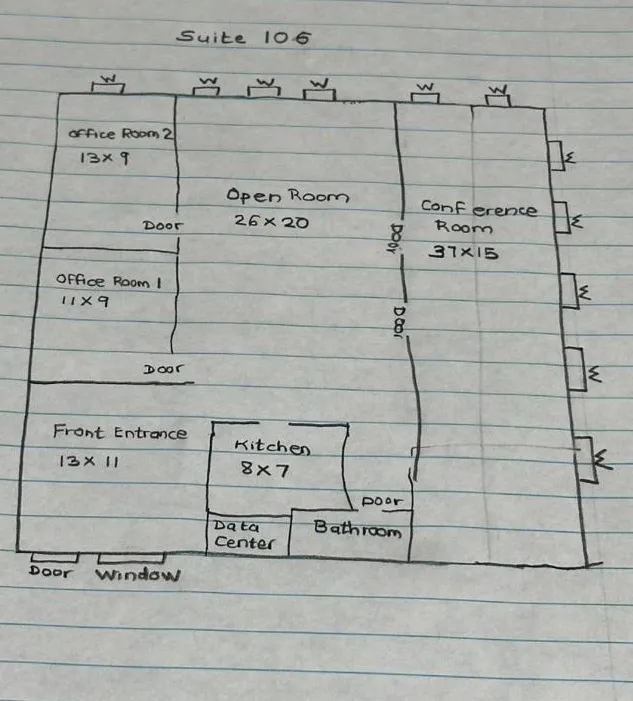 Suite 106
W
W
W
W
W
W
Office Room 2
13 x 9
Door
Open Room
26 x 20
Door
Conference
Room
37 x 15
W
W
W
W
W
Office Room 1
11 x 9
Door
Door
Front Entrance
13 x 11
Kitchen
8 x 7
Door
Data
Center
Bathroom
Door
Window